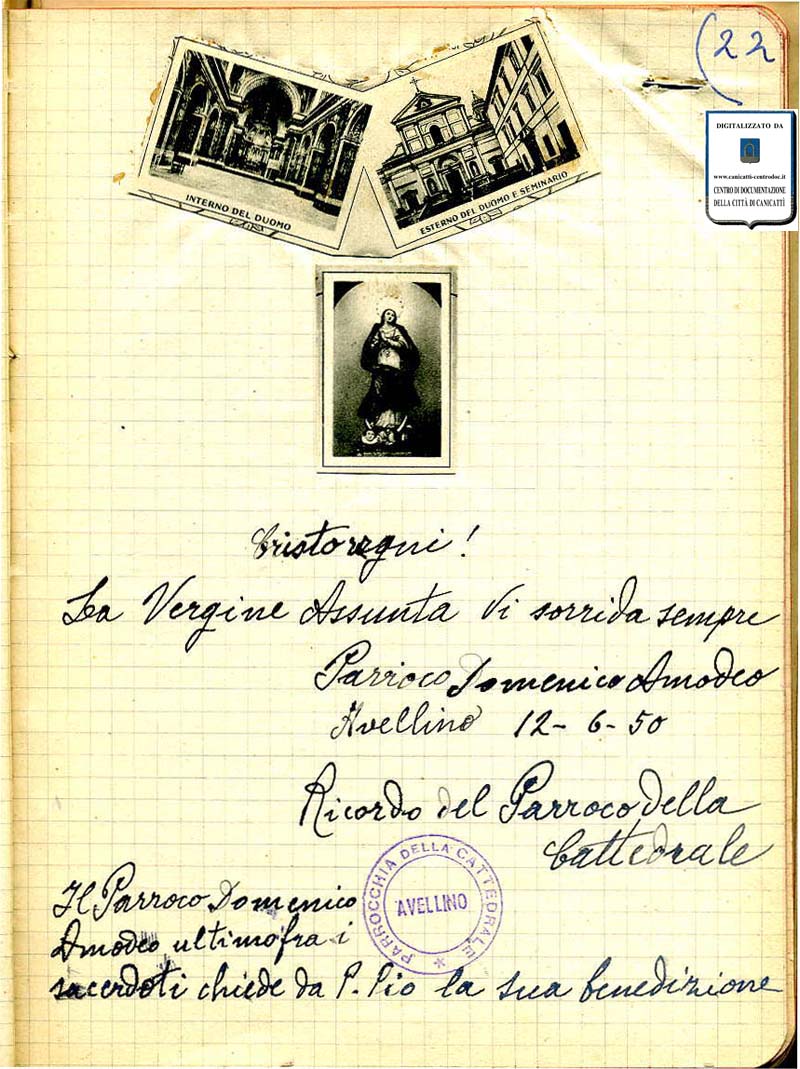 (22
DIGITALIZZATO DA
www.canicatti-centrodoc.it
CENTRO DI DOCUMENTAZIONE
DELLA CITTÀ DI CANICATTÌ
INTERNO DEL DUOMO
ESTERNO DEL DUOMO E SEMINARIO
Cristo regni!
La Vergine Assunta Vi sorrida sempre
Parroco Domenico Amodeo
Avellino 12-6-50
Ricordo del Parroco della
Cattedrale
PARROCCHIA DELLA CATTEDRALE
AVELLINO
Il Parroco Domenico
Amodeo ultimo fra i
sacerdoti chiede da P. Pio la sua benedizione